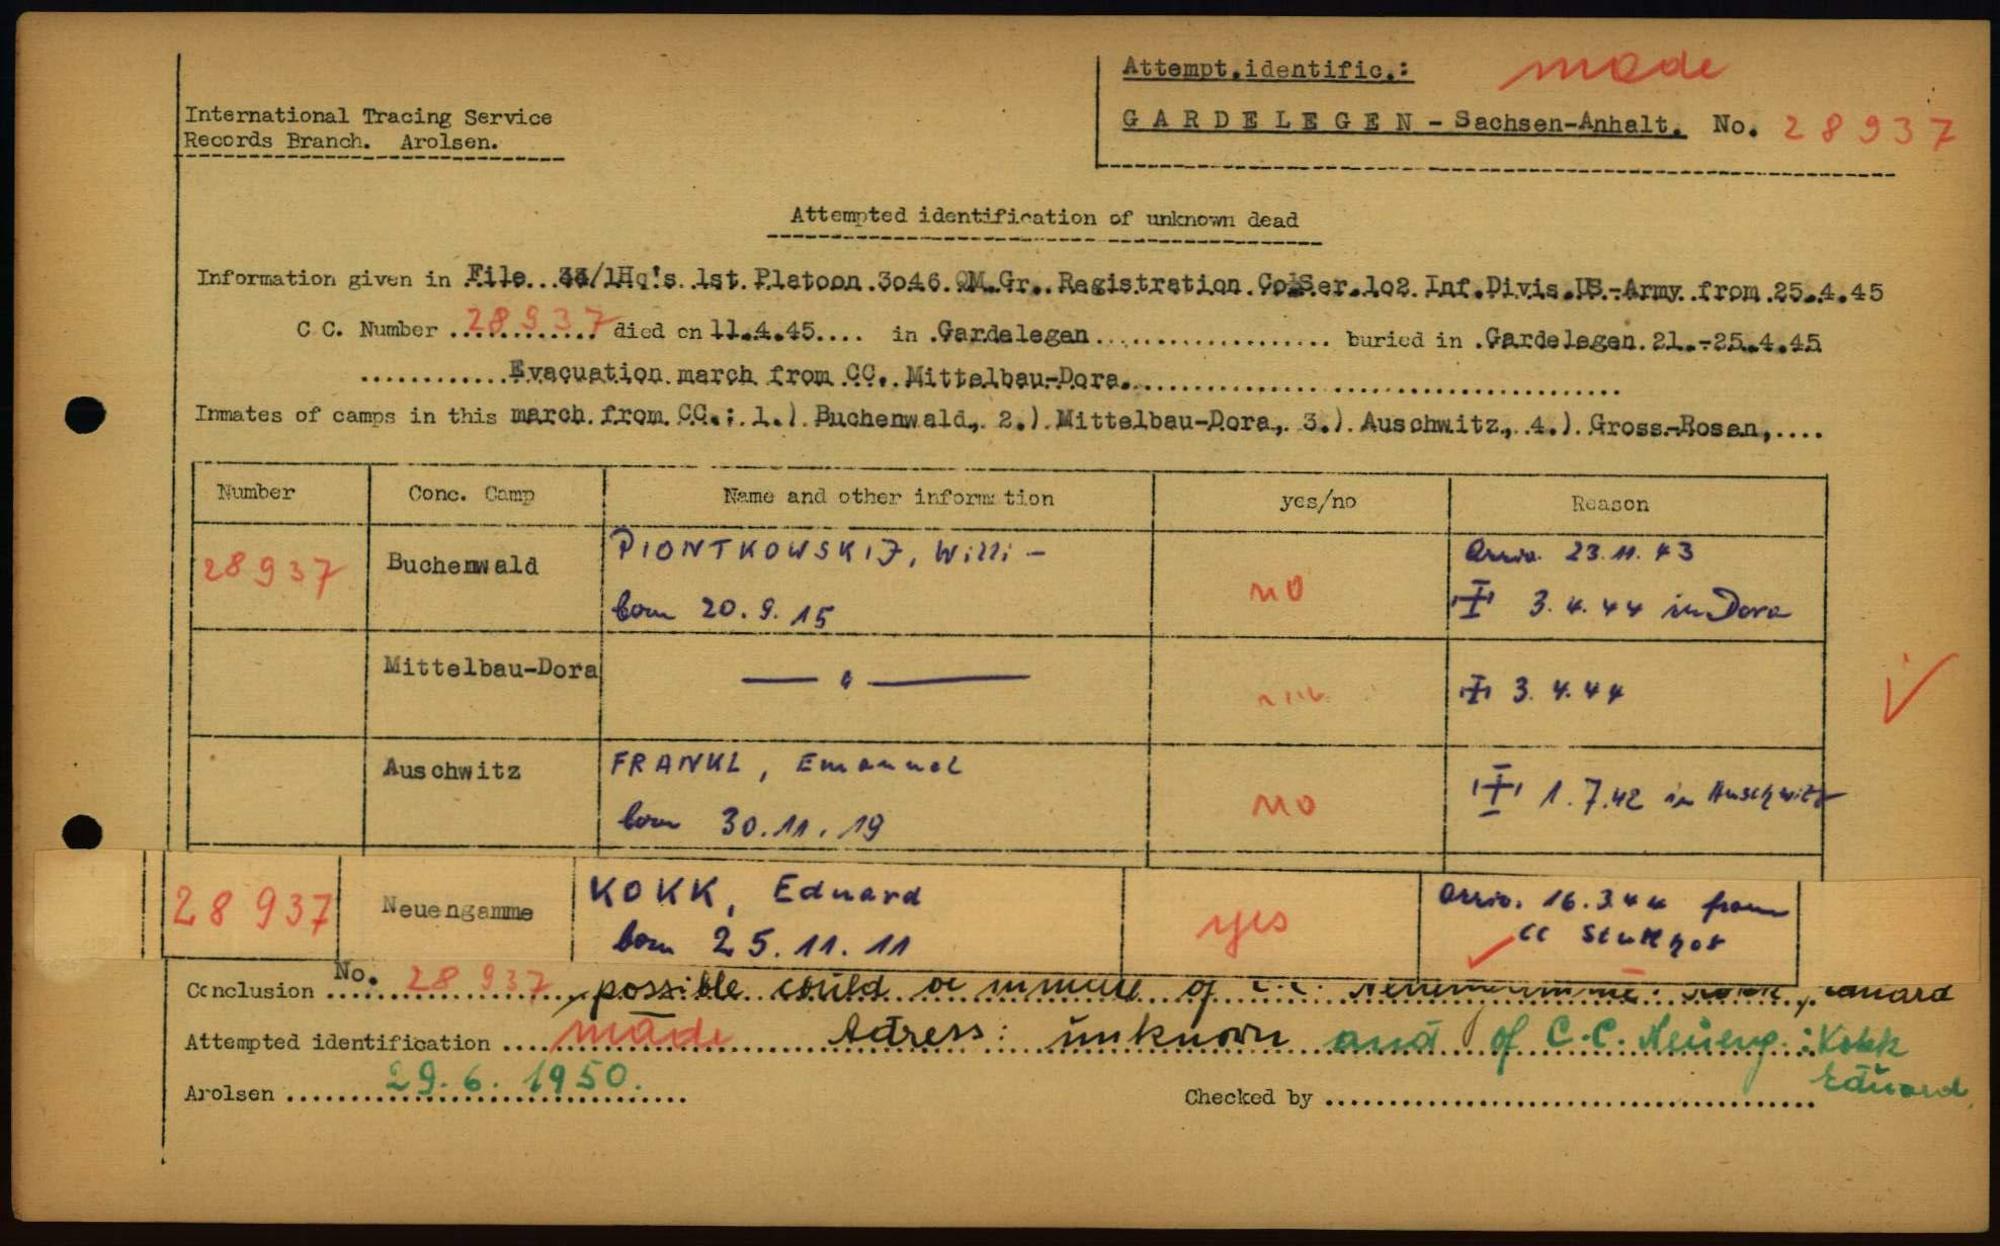 Attempt.identific.: made
International Tracing Service
Records Branch. Arolsen.
GARDELEGEN - Sachsen-Anhalt. No. 28937
Attempted identification of unknown dead
Information given in File.. /1Hq's. 1st. Platoon. 3o46. QM. Gr.. Registration. Co.Ser. 1o2. Inf. Divis. US.-Army. from 25..4.45
C C. Number 28937 died on 11.4.45.... in .Gardelegen.................... buried in .Gardelegen. 21.-25.4.45
............Evacuation march from CC. Mittelbau-Dora..............
Inmates of camps in this march from CC.: 1.) Buchenwald, 2.) Mittelbau-Dora, 3.) Auschwitz, 4.) Gross-Rosen,....
Number Conc. Camp Name and other information yes/no Reason
28937 Buchenwald PIONTKOWSKIJ, Willi - no Arriv. 23.11.43
born 20.9.15 3.4.44 in Dora
Mittelbau-Dora — " — 3.4.44
Auschwitz FRANKL, Emanuel no 1.7.42 in Auschwitz
born 30.11.19
28937 Neuengamme KOKK, Eduard yes Arriv. 16.3.44 from
born 25.11.11 CC Stutthof
Conclusion No. 28937, possible could be inmate of C.C.
Attempted identification .... made Adress: unknown and of C.C. Neueng.: Kokk
Eduard
Arolsen 29.6.1950. Checked by ..............